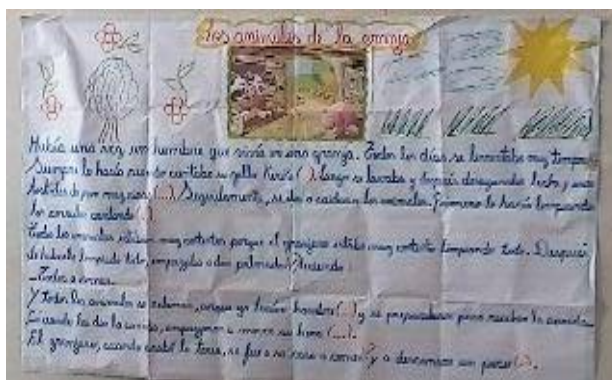 Los animales de la granja
Había una vez, un hombre que vivía en una granja. Todos los días se levantaba muy temprano.
Siempre lo hacía cuando cantaba su gallo (...). Luego se lavaba y después desayunaba leche y unas
(...). Seguidamente, se iba a cuidar a los animales. Primero lo hacía limpiando
los corrales cantando (...).
Todos los animales estaban muy contentos porque el granjero estaba muy contento limpiando todo. Después
de haberlo limpiado todo, empezaba a dar palmadas diciendo:
_Todos a comer.
Y todos los animales se ponían, porque ya hacían hambre (...) y se preparaban para recibir la comida.
Cuando les dio la comida, empezaron a comer (...).
El granjero, cuando acabó la tarea, se fue a su casa a comer y a descansar un poco (...).